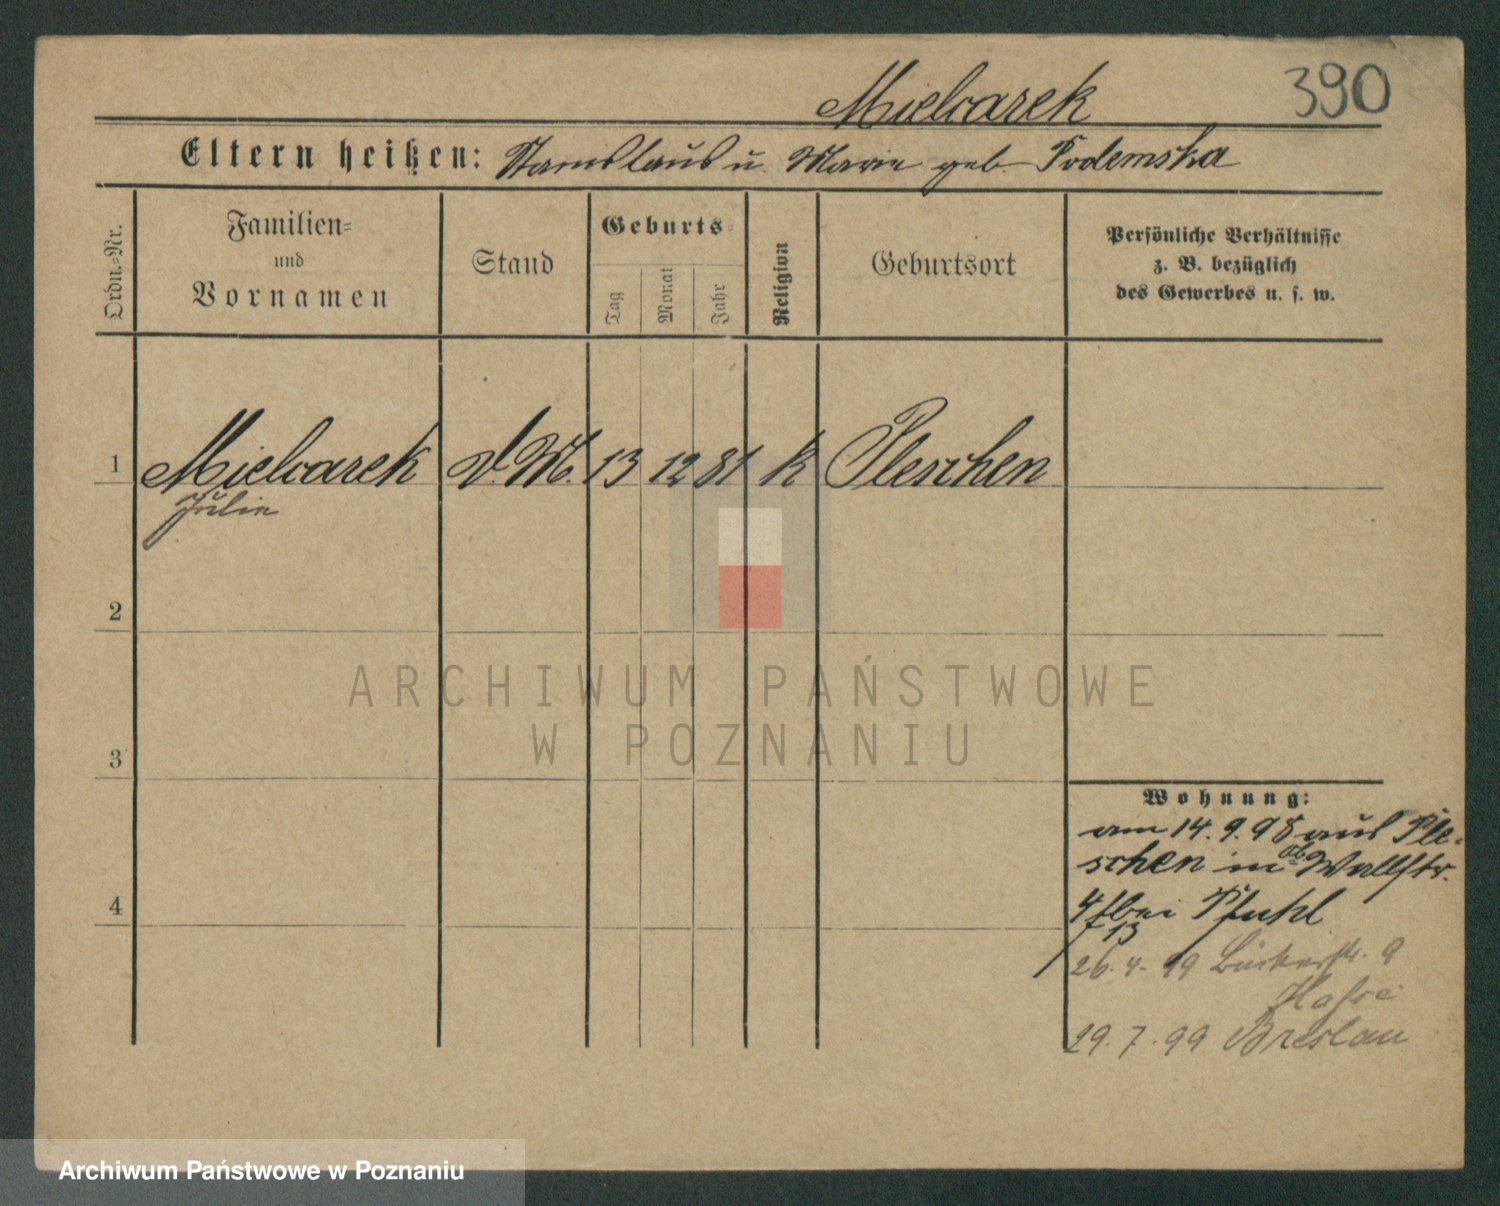 390
Mielcarek
Eltern heißen: Stanislaus u. Marie geb. Podemska
Ordn.-Nr.
Familien-
und
Vornamen
Stand
Geburts-
Tag
Monat
Jahr
Religion
Geburtsort
Persönliche Verhältnisse
z. B. bezüglich
des Gewerbes u. s. w.
1 Mielcarek D. M. 13 12 81 K Pleschen
Julie
2
3
4
ARCHIWUM PAŃSTWOWE
W POZNANIU
Wohnung:
am 14.9.98 aus Ple-
schen in Wallstr.
bei Pfuhl
13
26.4.99 9
29.7.99 Breslau
Archiwum Państwowe w Poznaniu